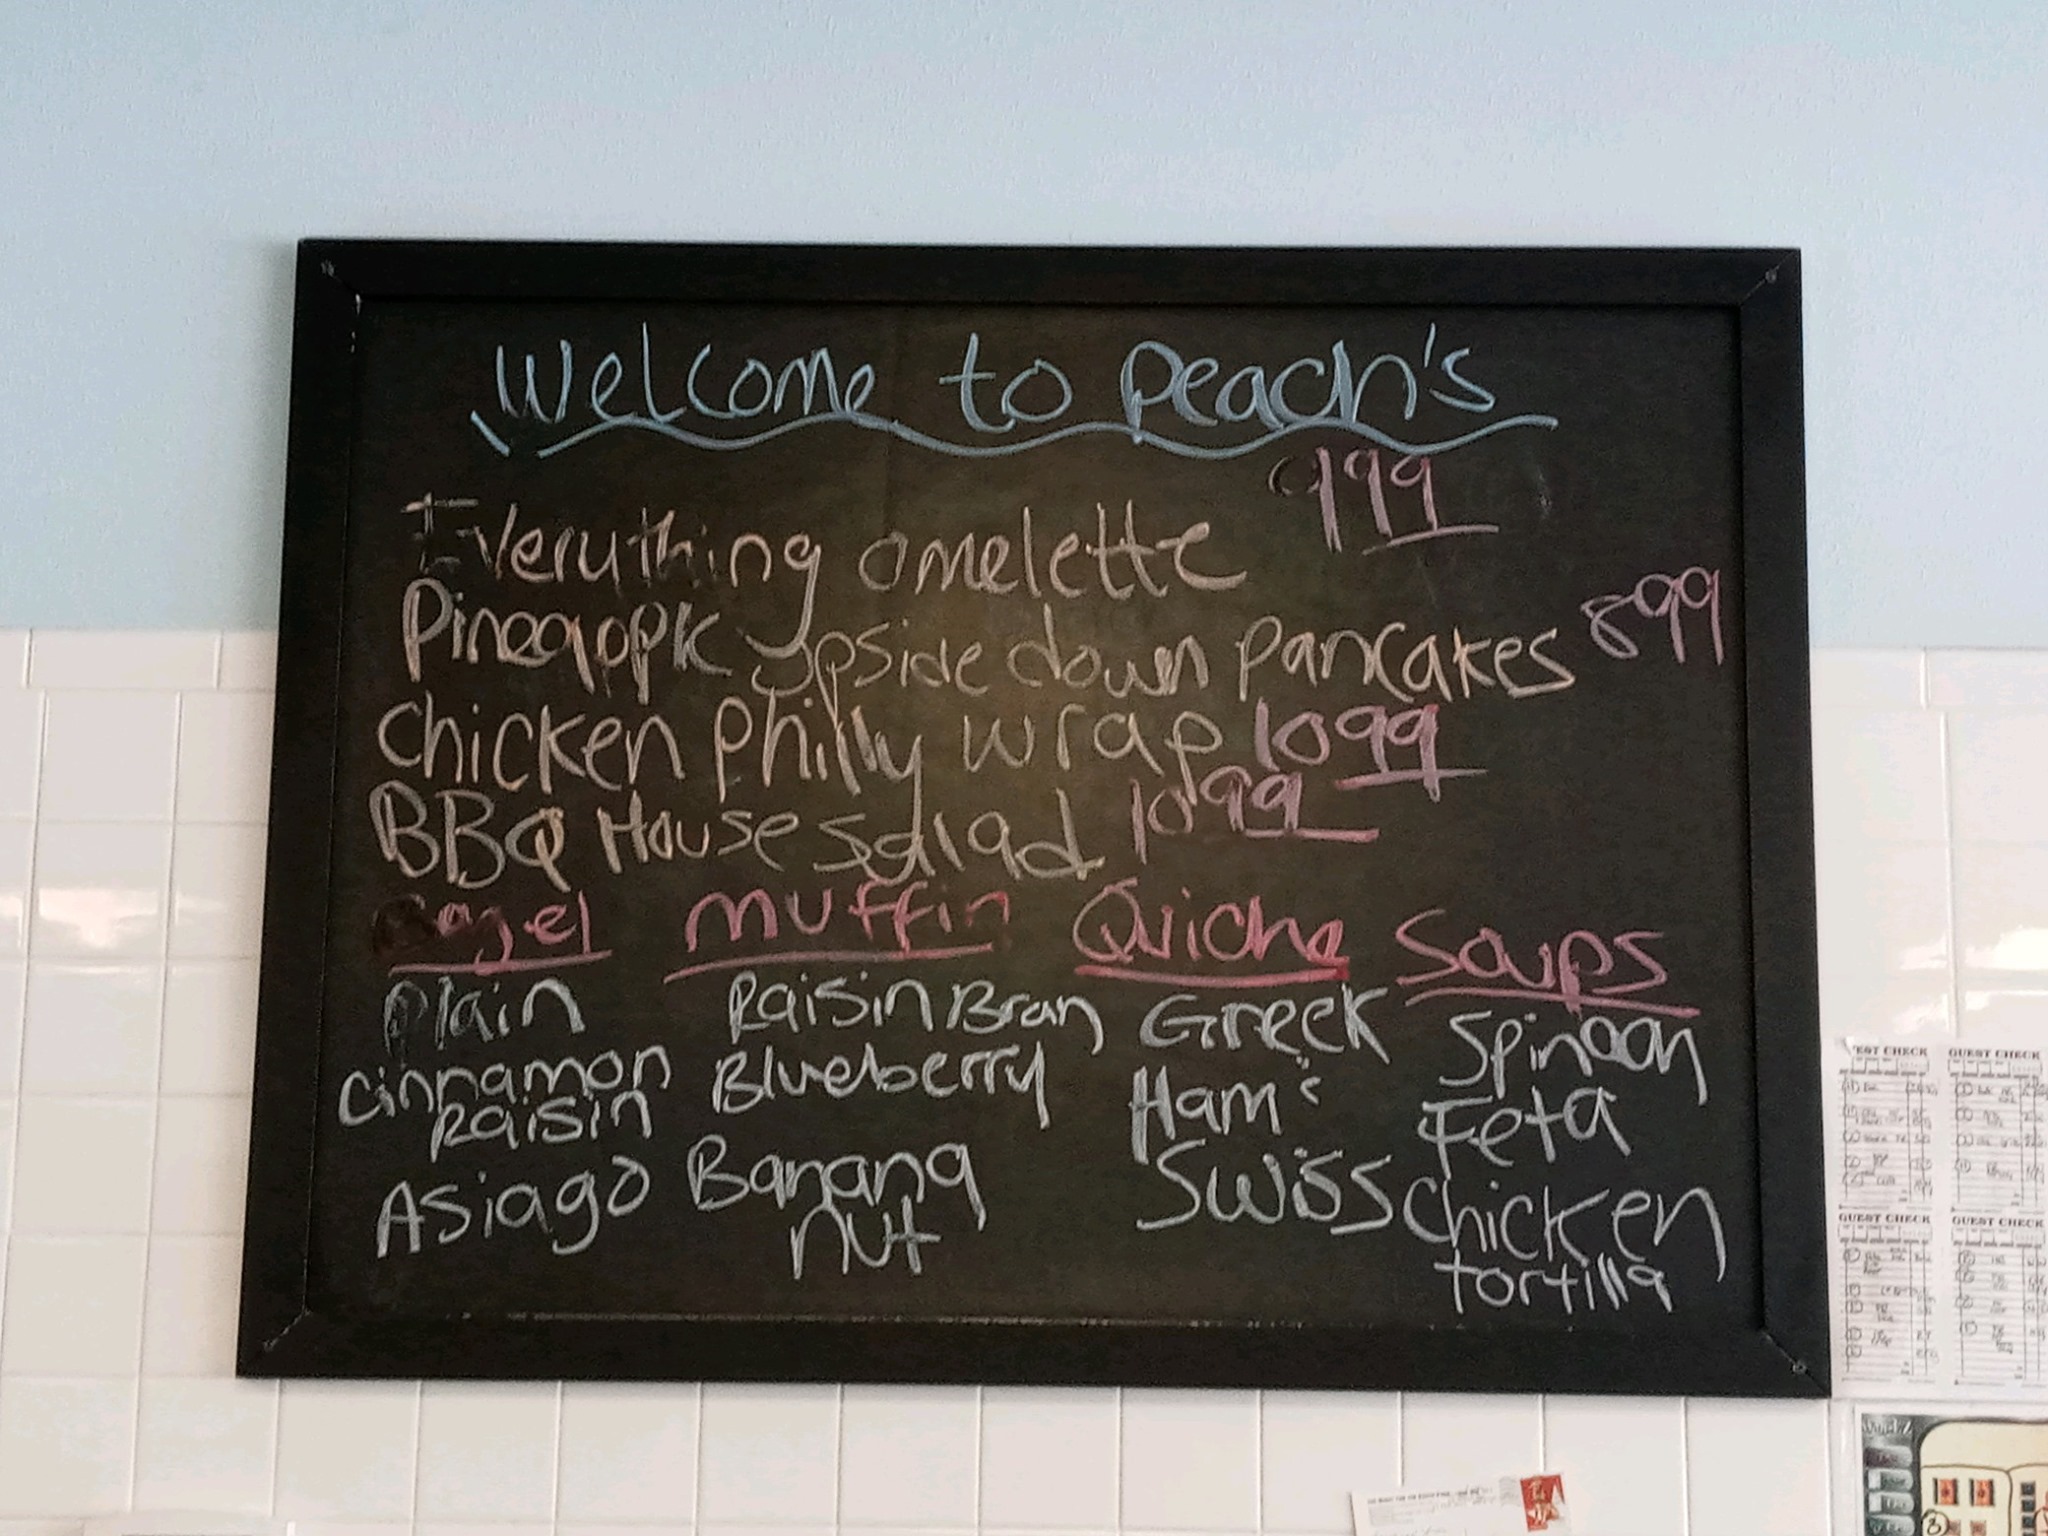 Welcome to Peach's
Everything omelette 999
Pineapple upside down pancakes 899
Chicken philly wrap 1099
BBQ House salad 1099
Bagel Muffin Quiche Soups
Plain
Cinnamon
Raisin
Asiago
Raisin Bran
Blueberry
Banana
nut
Greek
Ham &
Swiss
Spinach
Feta
Chicken
tortilla
GUEST CHECK
GUEST CHECK
GUEST CHECK